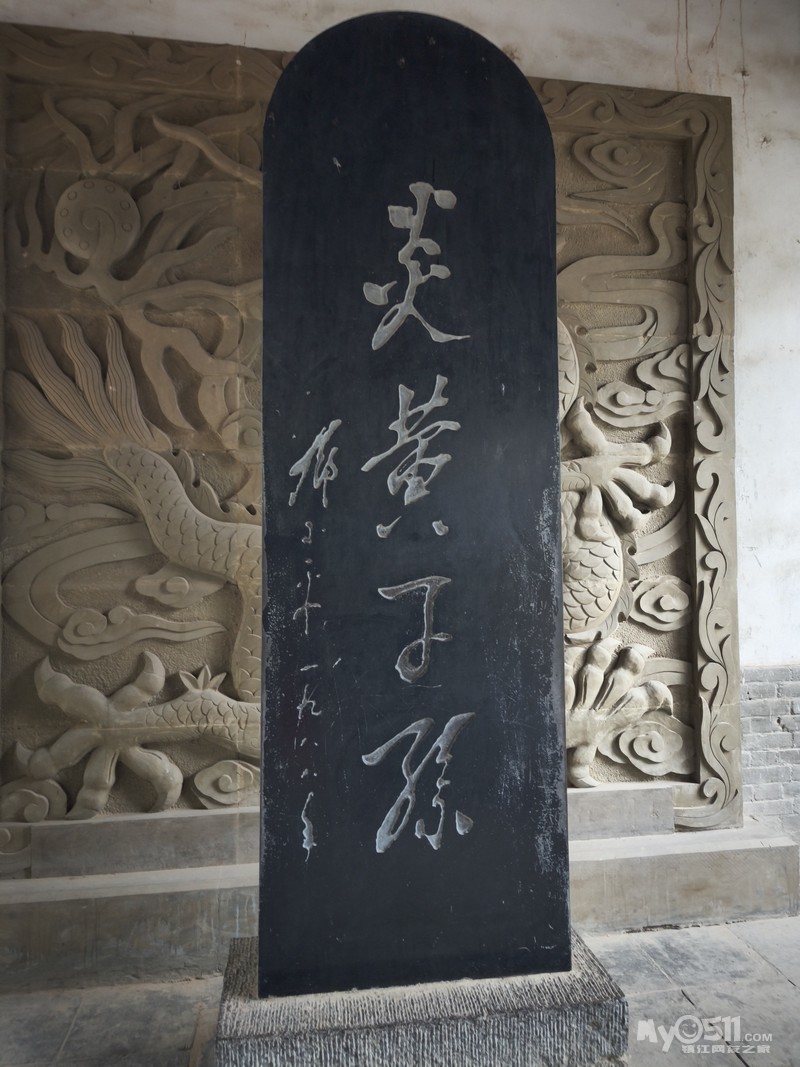 炎黄子孫
邓小平 一九八八年
My0511.COM
镇江网友之家